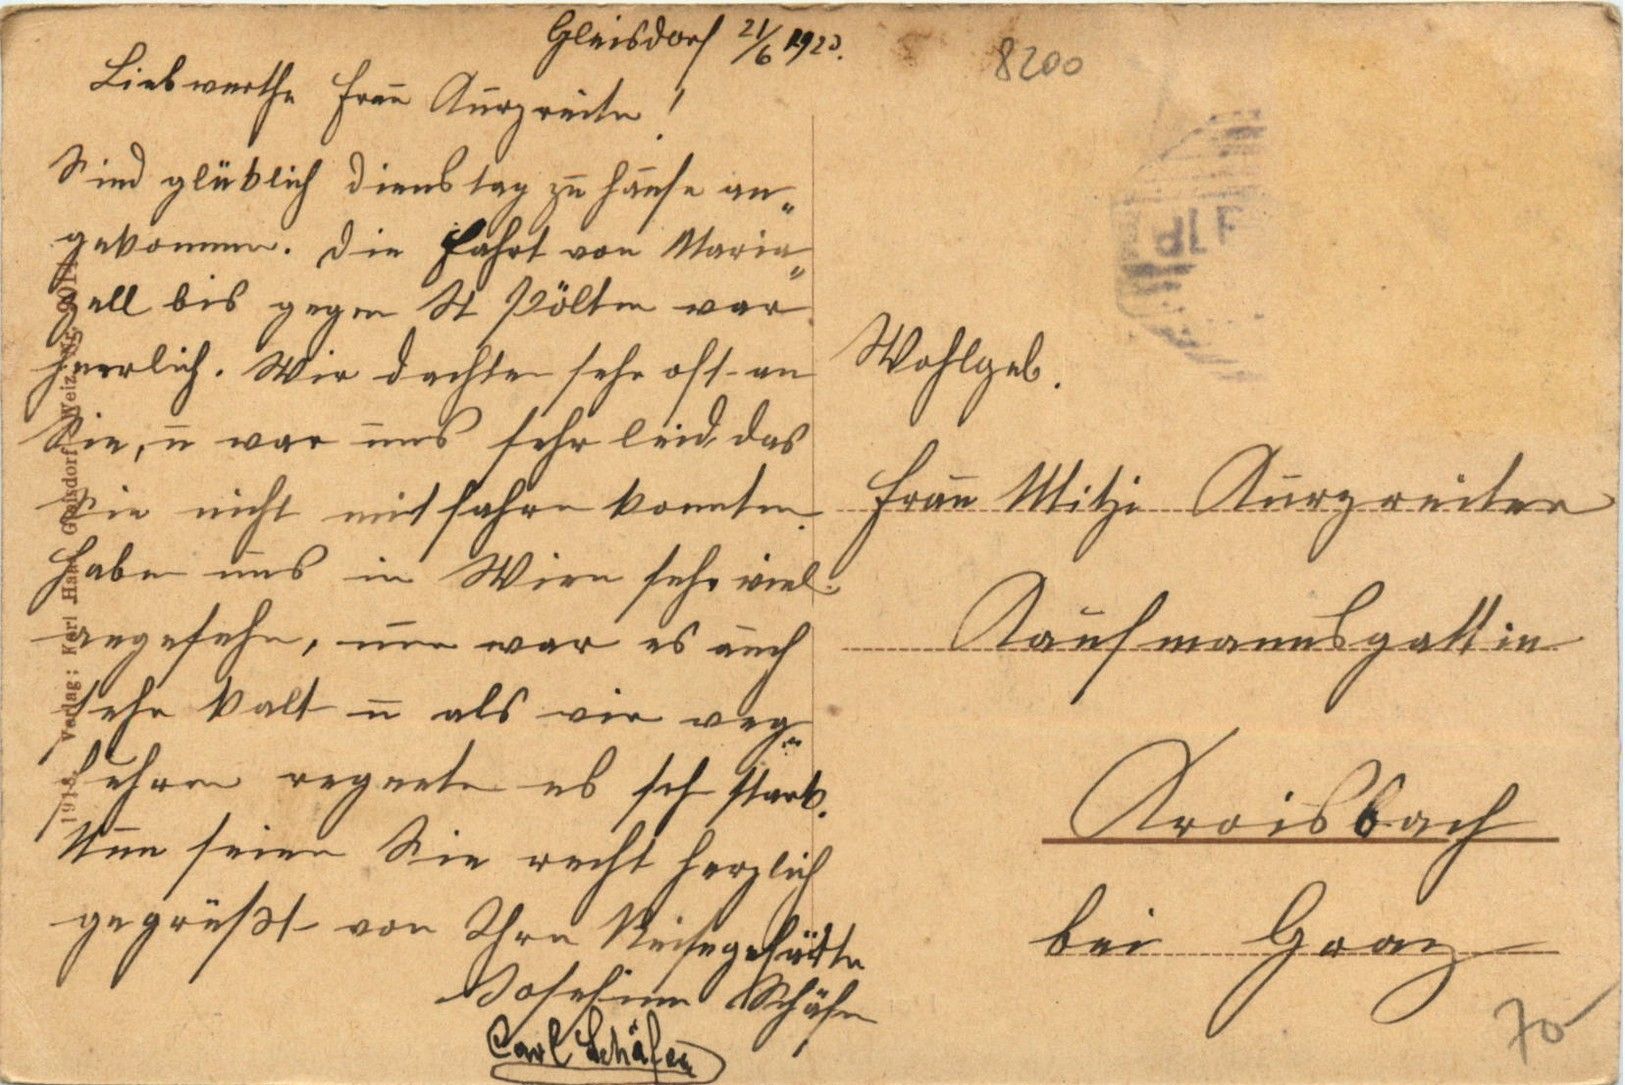 Gleisdorf 21/6 1923.
Liebwerthe Frau Kurzreiter!
Sind glüklich Dienstag zu hause an„
gekommen. Die Fahrt von Maria„
zell bis gegen St Pölten war
herrlich. Wir dachten sehr oft an
Sie, u war uns sehr leid das
Sie nicht mitfahren konnten.
Haben uns in Wien sehr viel
angesehn, nun war es auch
sehr kalt u als wir weg„
fuhren regnete es sch stark.
Nun seien Sie recht herzlich
gegrüßt von Ihre Reisegefärtte
Josefine Schäfer
Carl Schäfer
1918. Verlag: Karl Gleisdorf-Weiz
8200
Wohlgeb.
Frau Mitzi Kurzreiter
Kaufmannsgattin
Kroisbach
bei Graz
70